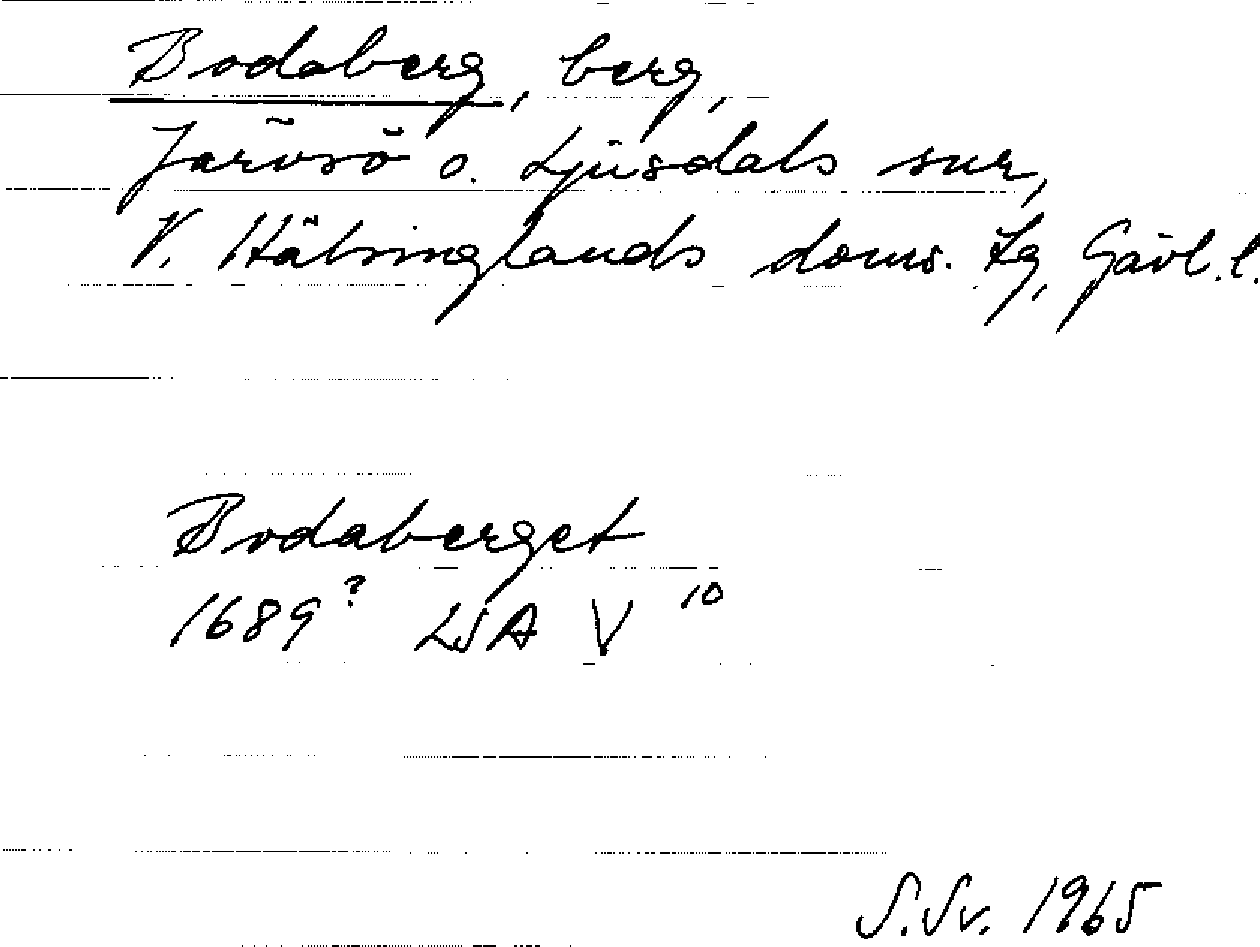 Bodaberg, berg,
Järvsö o. Ljusdals snr,
V. Hälsinglands doms. tg, Gävl. l.
Bodaberget
1689? LSA V 10
S. Sv. 1965